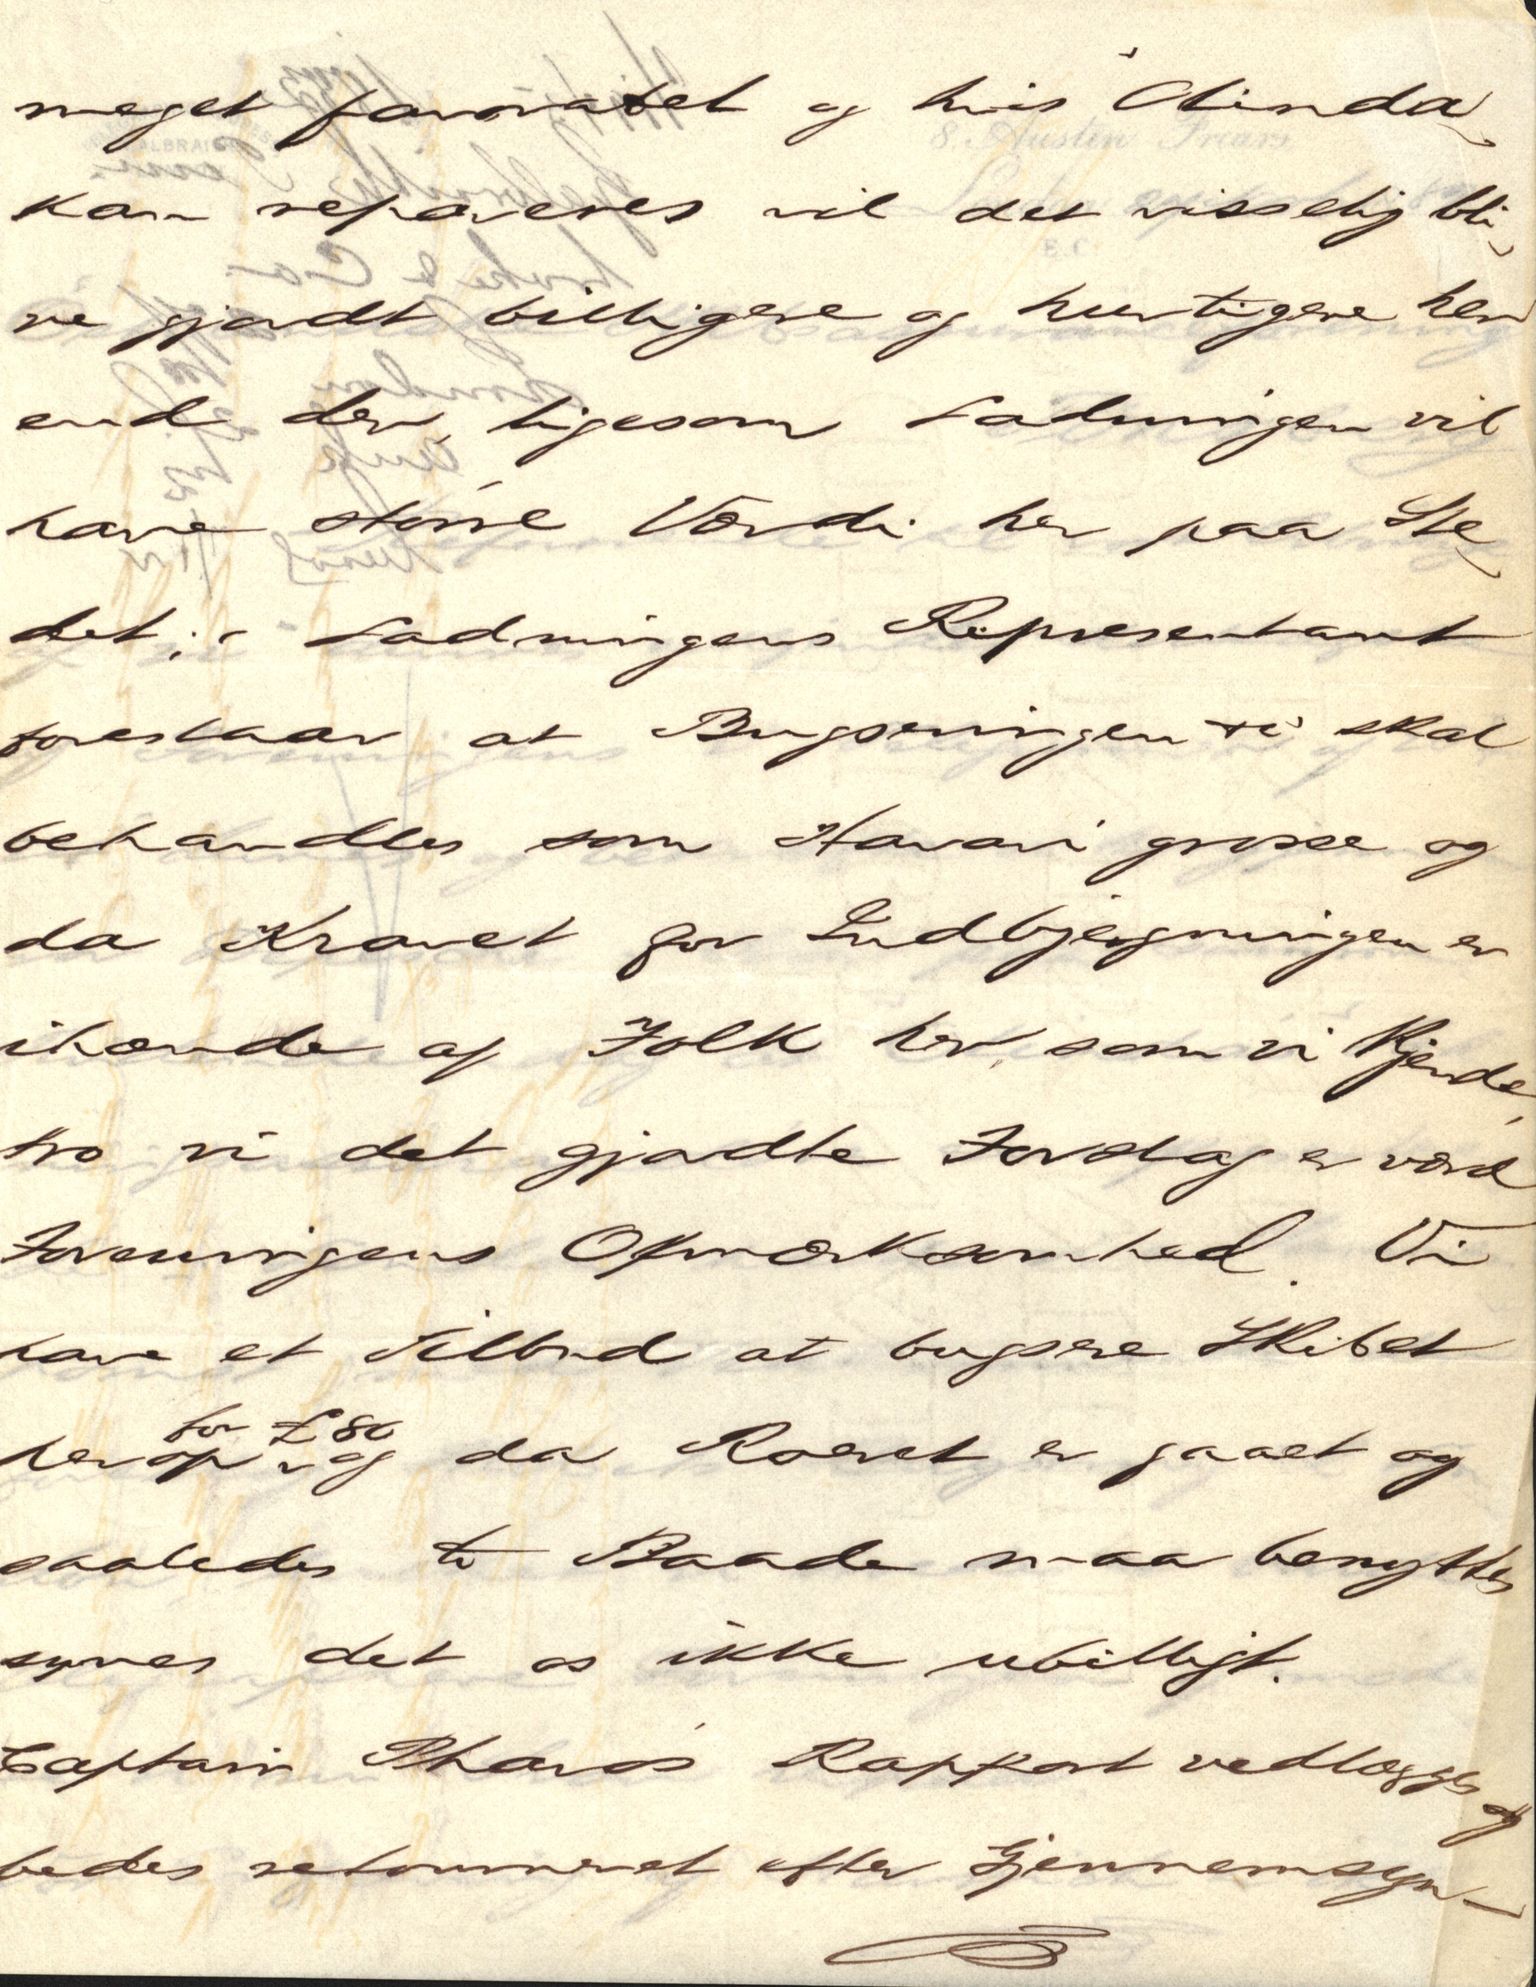 meget favorabel og hvis "Olinda"
kan repareres vil det visselig bli-
ve gjordt billigere og hurtigere her
end der, ligesom Ladningen vil
have større Værdi her paa Ste-
det; - Ladningens Representant
forestaar at Bugseringen til skal
behandles som Havari grosse og
da Kravet for Indbjergningen er
ihænde af Folk her, som vi kjende,
tro vi det gjordte Forslag er værd
Foreningens Opmærksomhed. Vi
have et Tilbud at bugsere Skibet
for £80
herop og da Roeret er gaaet og
saaledes to Baade maa benyttes
synes det os ikke ubilligt.
Captain Pharos Rapport vedlægges og
bedes retourneret efter Gjennemsyn-
8. Austin Friars